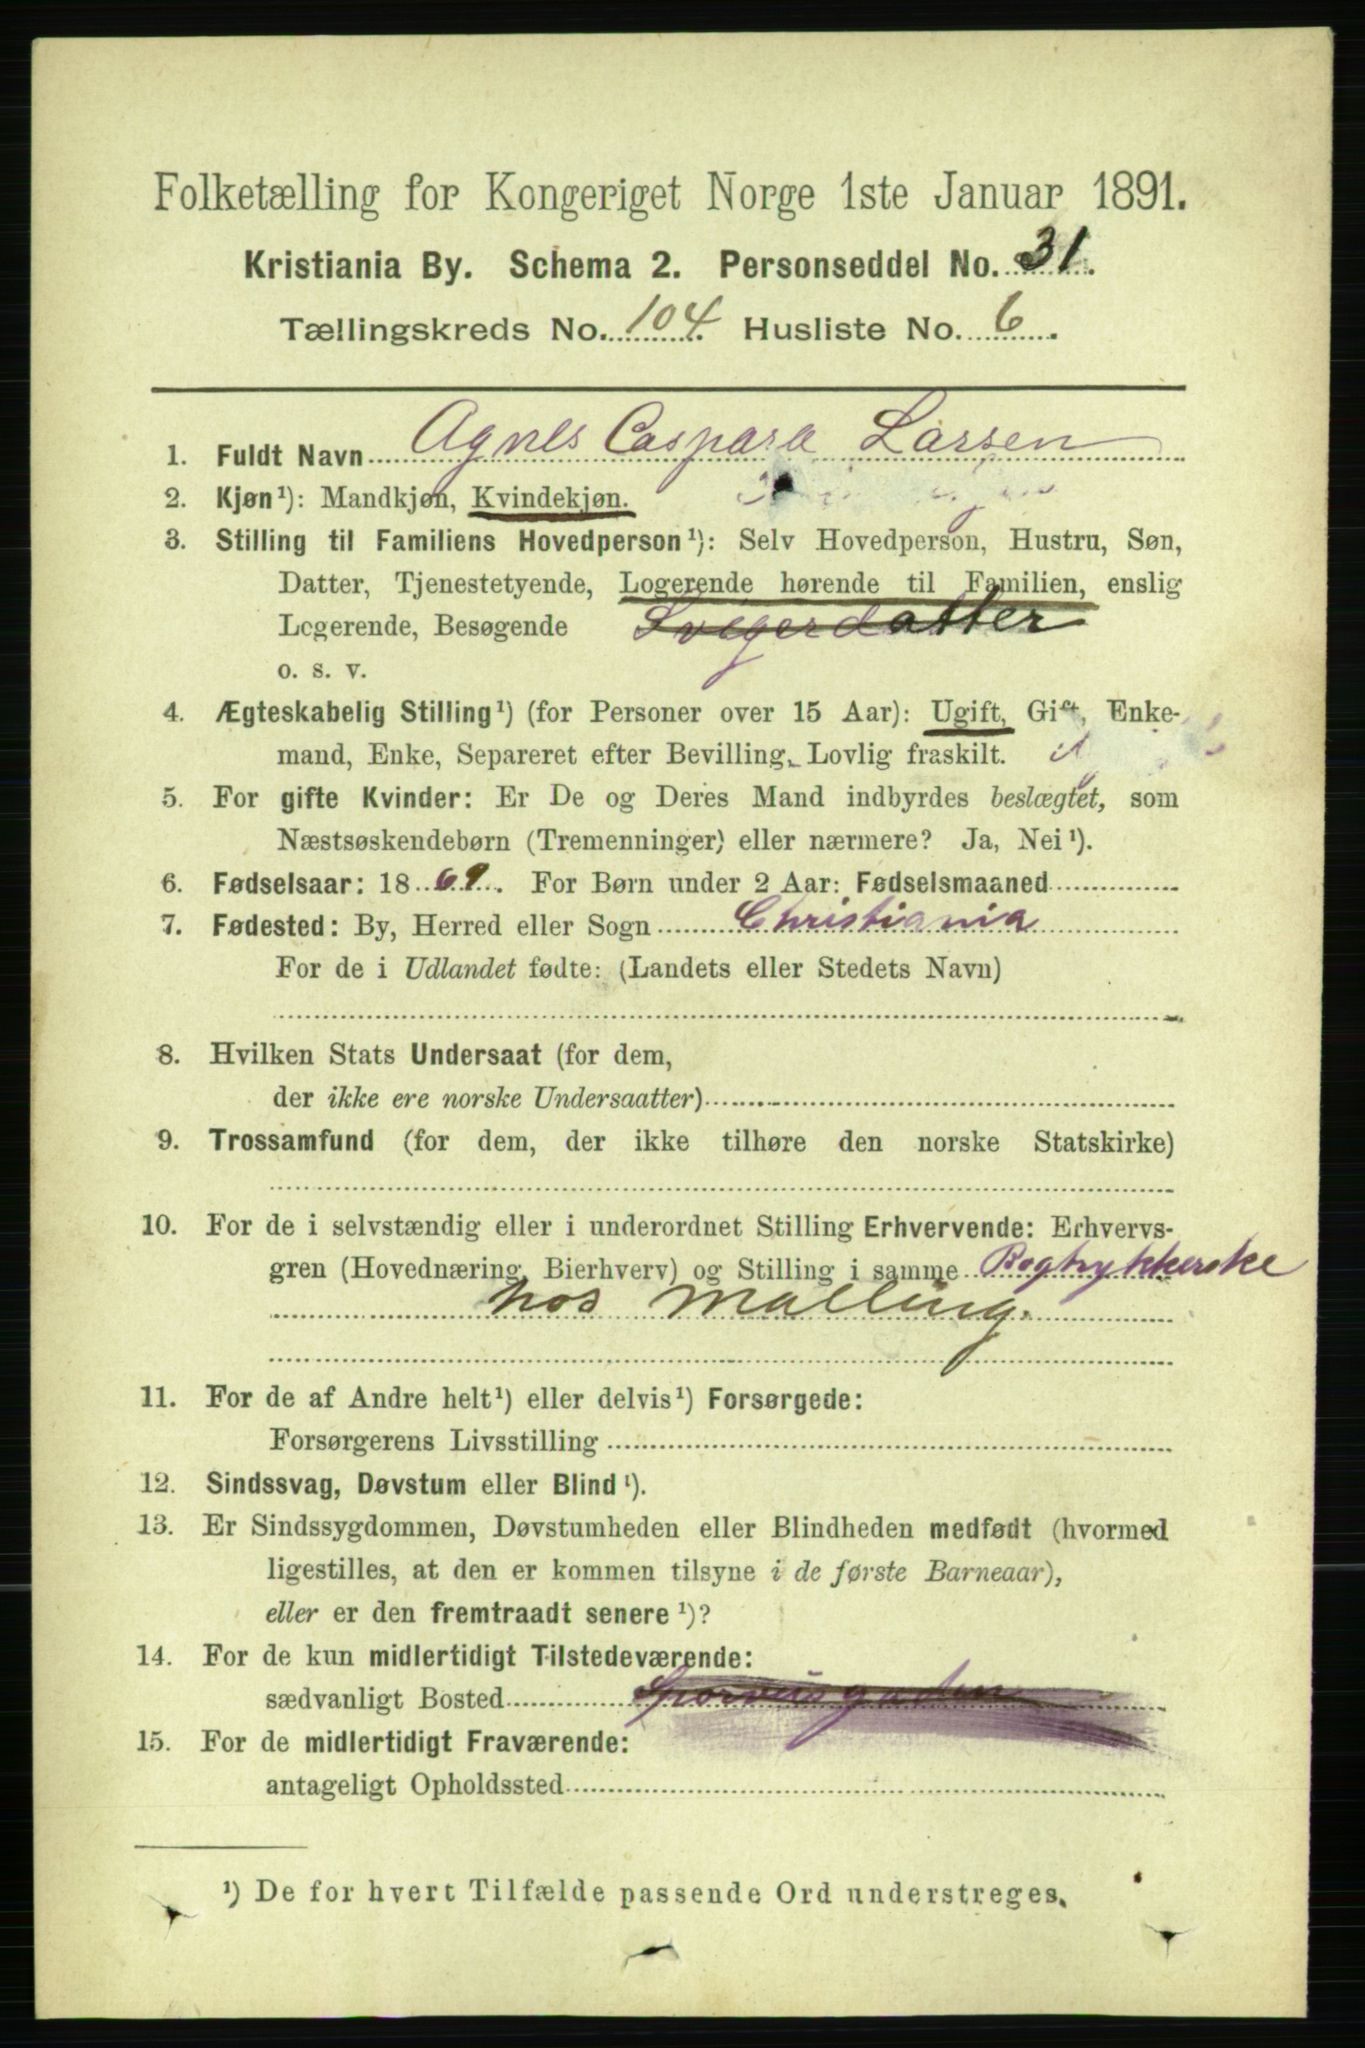 Folketælling for Kongeriget Norge 1ste Januar 1891.
Kristiania By. Schema 2. Personseddel No. 31.
Tællingskreds No. 104 Husliste No. 6.
1. Fuldt Navn Agnes Caspara Larsen
2. Kjøn¹): Mandkjøn, Kvindekjøn.
3. Stilling til Familiens Hovedperson¹): Selv Hovedperson, Hustru, Søn,
Datter, Tjenestetyende, Logerende hørende til Familien, enslig
Logerende, Besøgende Svigerdatter
o. s. v.
4. Ægteskabelig Stilling¹) (for Personer over 15 Aar): Ugift, Gift, Enke-
mand, Enke, Separeret efter Bevilling, Lovlig fraskilt.
5. For gifte Kvinder: Er De og Deres Mand indbyrdes beslægtet, som
Næstsøskendebørn (Tremenninger) eller nærmere? Ja, Nei¹).
6. Fødselsaar: 1869. For Børn under 2 Aar: Fødselsmaaned
7. Fødested: By, Herred eller Sogn Christiania
For de i Udlandet fødte: (Landets eller Stedets Navn)
8. Hvilken Stats Undersaat (for dem,
der ikke ere norske Undersaatter)
9. Trossamfund (for dem, der ikke tilhøre den norske Statskirke)
10. For de i selvstændig eller i underordnet Stilling Erhvervende: Erhvervs-
gren (Hovednæring, Bierhverv) og Stilling i samme Bogtrykkerske
hos Malling.
11. For de af Andre helt¹) eller delvis¹) Forsørgede:
Forsørgerens Livsstilling
12. Sindssvag, Døvstum eller Blind¹).
13. Er Sindssygdommen, Døvstumheden eller Blindheden medfødt (hvormed
ligestilles, at den er kommen tilsyne i de første Barneaar),
eller er den fremtraadt senere¹)?
14. For de kun midlertidigt Tilstedeværende:
sædvanligt Bosted
15. For de midlertidigt Fraværende:
antageligt Opholdssted
¹) De for hvert Tilfælde passende Ord understreges.